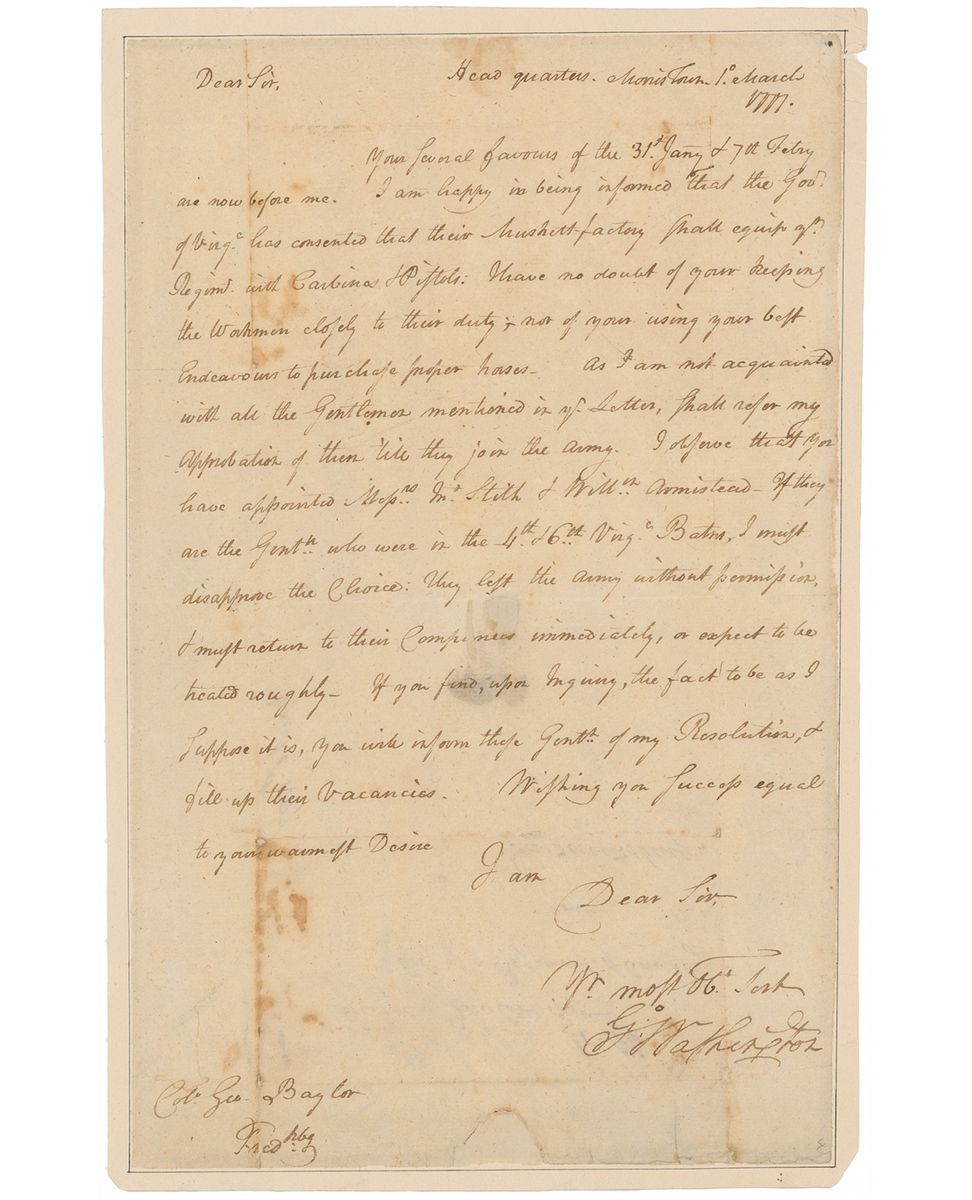 Dear Sir,
Head quarters. Morris Town 1º March
1777.
Your several favours of the 31st Jany & 7th Febry
are now before me. I am happy in being informed that the Govr
of Virga has consented that their Muskett-factory shall equip yr
Regimt with Carbines & Pistols: I have no doubt of your keeping
the Workmen closely to their duty, nor of your using your best
Endeavours to purchase proper horses— As I am not acquainted
with all the Gentlemen mentioned in yr Letter, shall refer my
Approbation of them till they join the Army. I observe that you
have appointed Messrs Jno Stith & Willm Armistead— If they
are the Gentn who were in the 4th & 6th Virga Batns, I must
disapprove the Choice: They left the Army without permission,
& must return to their Companies immediately, or expect to be
treated roughly— If you find, upon Inquiry, the fact to be as I
suppose it is, you will inform these Gentn of my Resolution, &
fill up their Vacancies. Wishing you Success equal
to your warmest Desire
I am
Dear Sir
Yr most Obt Servt
Go Washington
Colo Geo Baylor
Fredksbg